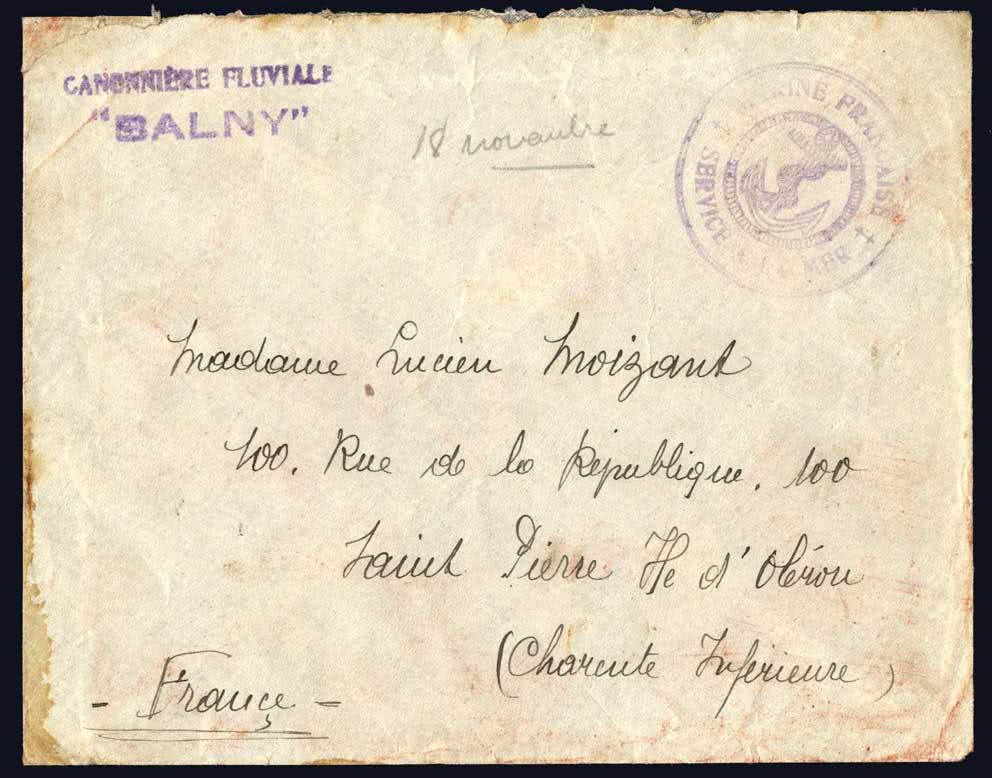 CANONNIÈRE FLUVIALE
"BALNY"
18 novembre
MARINE FRANÇAISE
SERVICE A LA MER
Madame Lucien Moizant
100. Rue de la République. 100
Saint Pierre Ile d'Oléron
(Charente Inférieure)
- France -